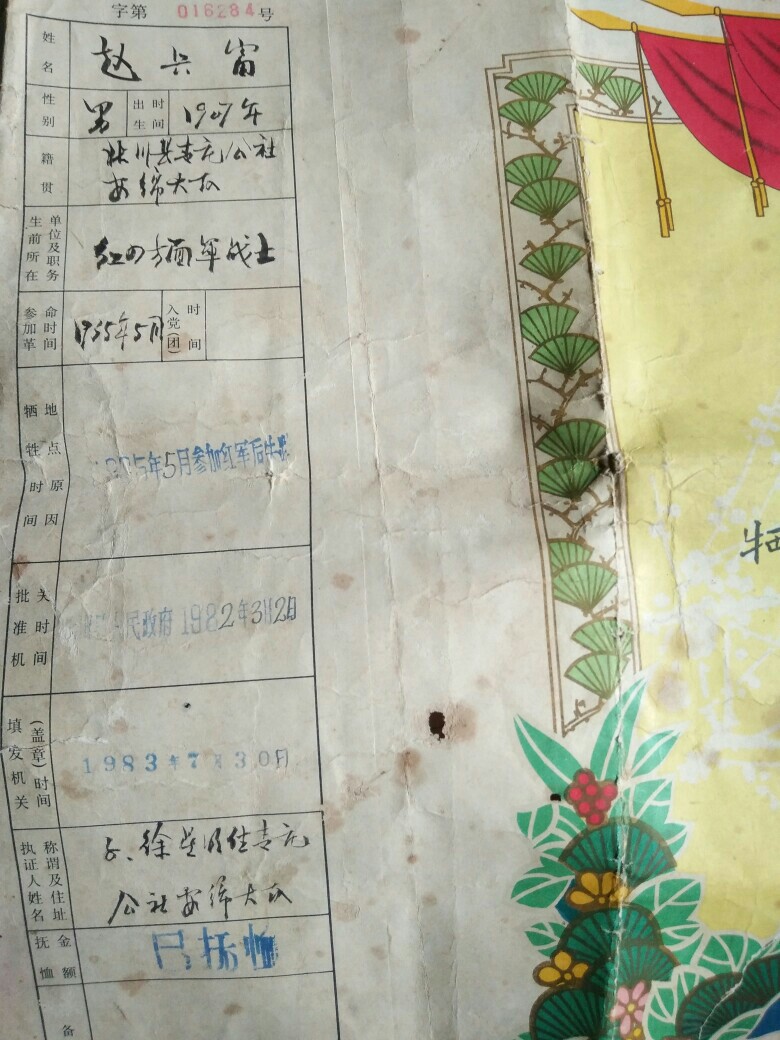 字第 016284号
姓名 赵兴富
性别 男 出生时间 19 年
籍贯 川县青元公社
安绵大队
生前所在单位及职务 红四方面军战士
参加革命时间 1935年5月 入党(团)时间
牺牲时间地点原因 1935年5月参加红军后牺
批准机关时间 民政府 1982年3月2日
填发机关(盖章)时间 1983年7月30日
执证人姓名称谓及住址 子、徐 住青元
公社安绵大队
抚恤金额 已抚恤
备
牺